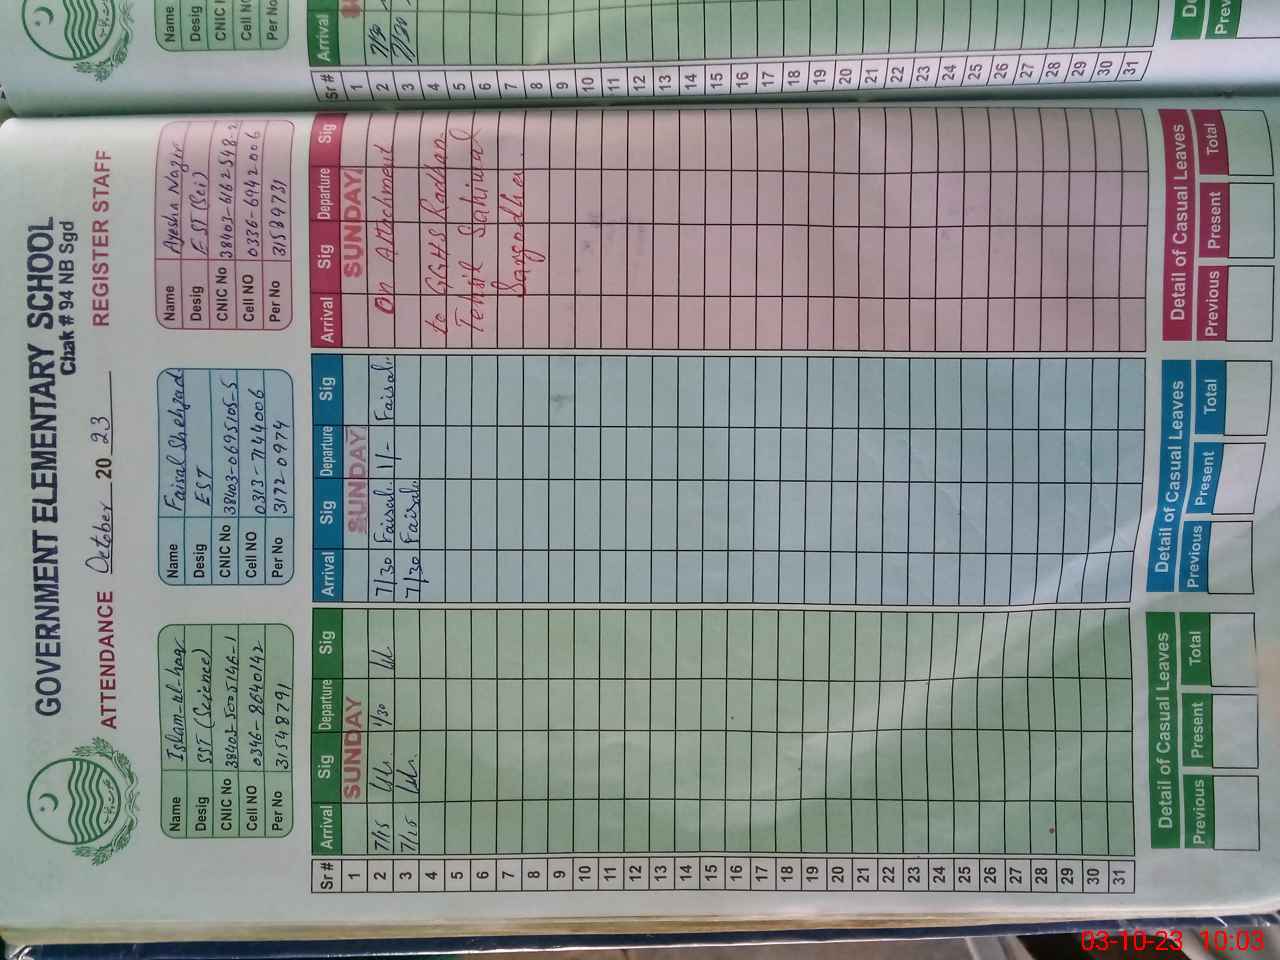 GOVERNMENT ELEMENTARY SCHOOL
Chak # 94 NB Sgd
ATTENDANCE October 20 23 REGISTER STAFF
Name Islam-ul-haq
Desig SST (Science)
CNIC No 38403-5005146-1
Cell NO 0346-8640142
Per No 31548791
Name Faisal Shehzad
Desig EST
CNIC No 38403-0695105-5
Cell NO 0313-7144006
Per No 31720974
Name Ayesha Nazir
Desig EST (Sci)
CNIC No 38403-6162548-2
Cell NO 0336-6942006
Per No 31589731
Sr # Arrival Sig Departure Sig Arrival Sig Departure Sig Arrival Sig Departure Sig
1 SUNDAY SUNDAY SUNDAY
2 7/15 1/30 7/30 Faisal 1/- Faisal On Attachment
3 7/15 7/30 Faisal
4 to GGHS Radhan
5 Tehsil Sahiwal
6
7 Sargodha
8
9
10
11
12
13
14
15
16
17
18
19
20
21
22
23
24
25
26
27
28
29
30
31
Detail of Casual Leaves Detail of Casual Leaves Detail of Casual Leaves
Previous Present Total Previous Present Total Previous Present Total
Name
Desig
CNIC
Cell NO
Per No
Sr # Arrival
1
2 7/30
3 7/30
4
5
6
7
8
9
10
11
12
13
14
15
16
17
18
19
20
21
22
23
24
25
26
27
28
29
30
31
03-10-23 10:03